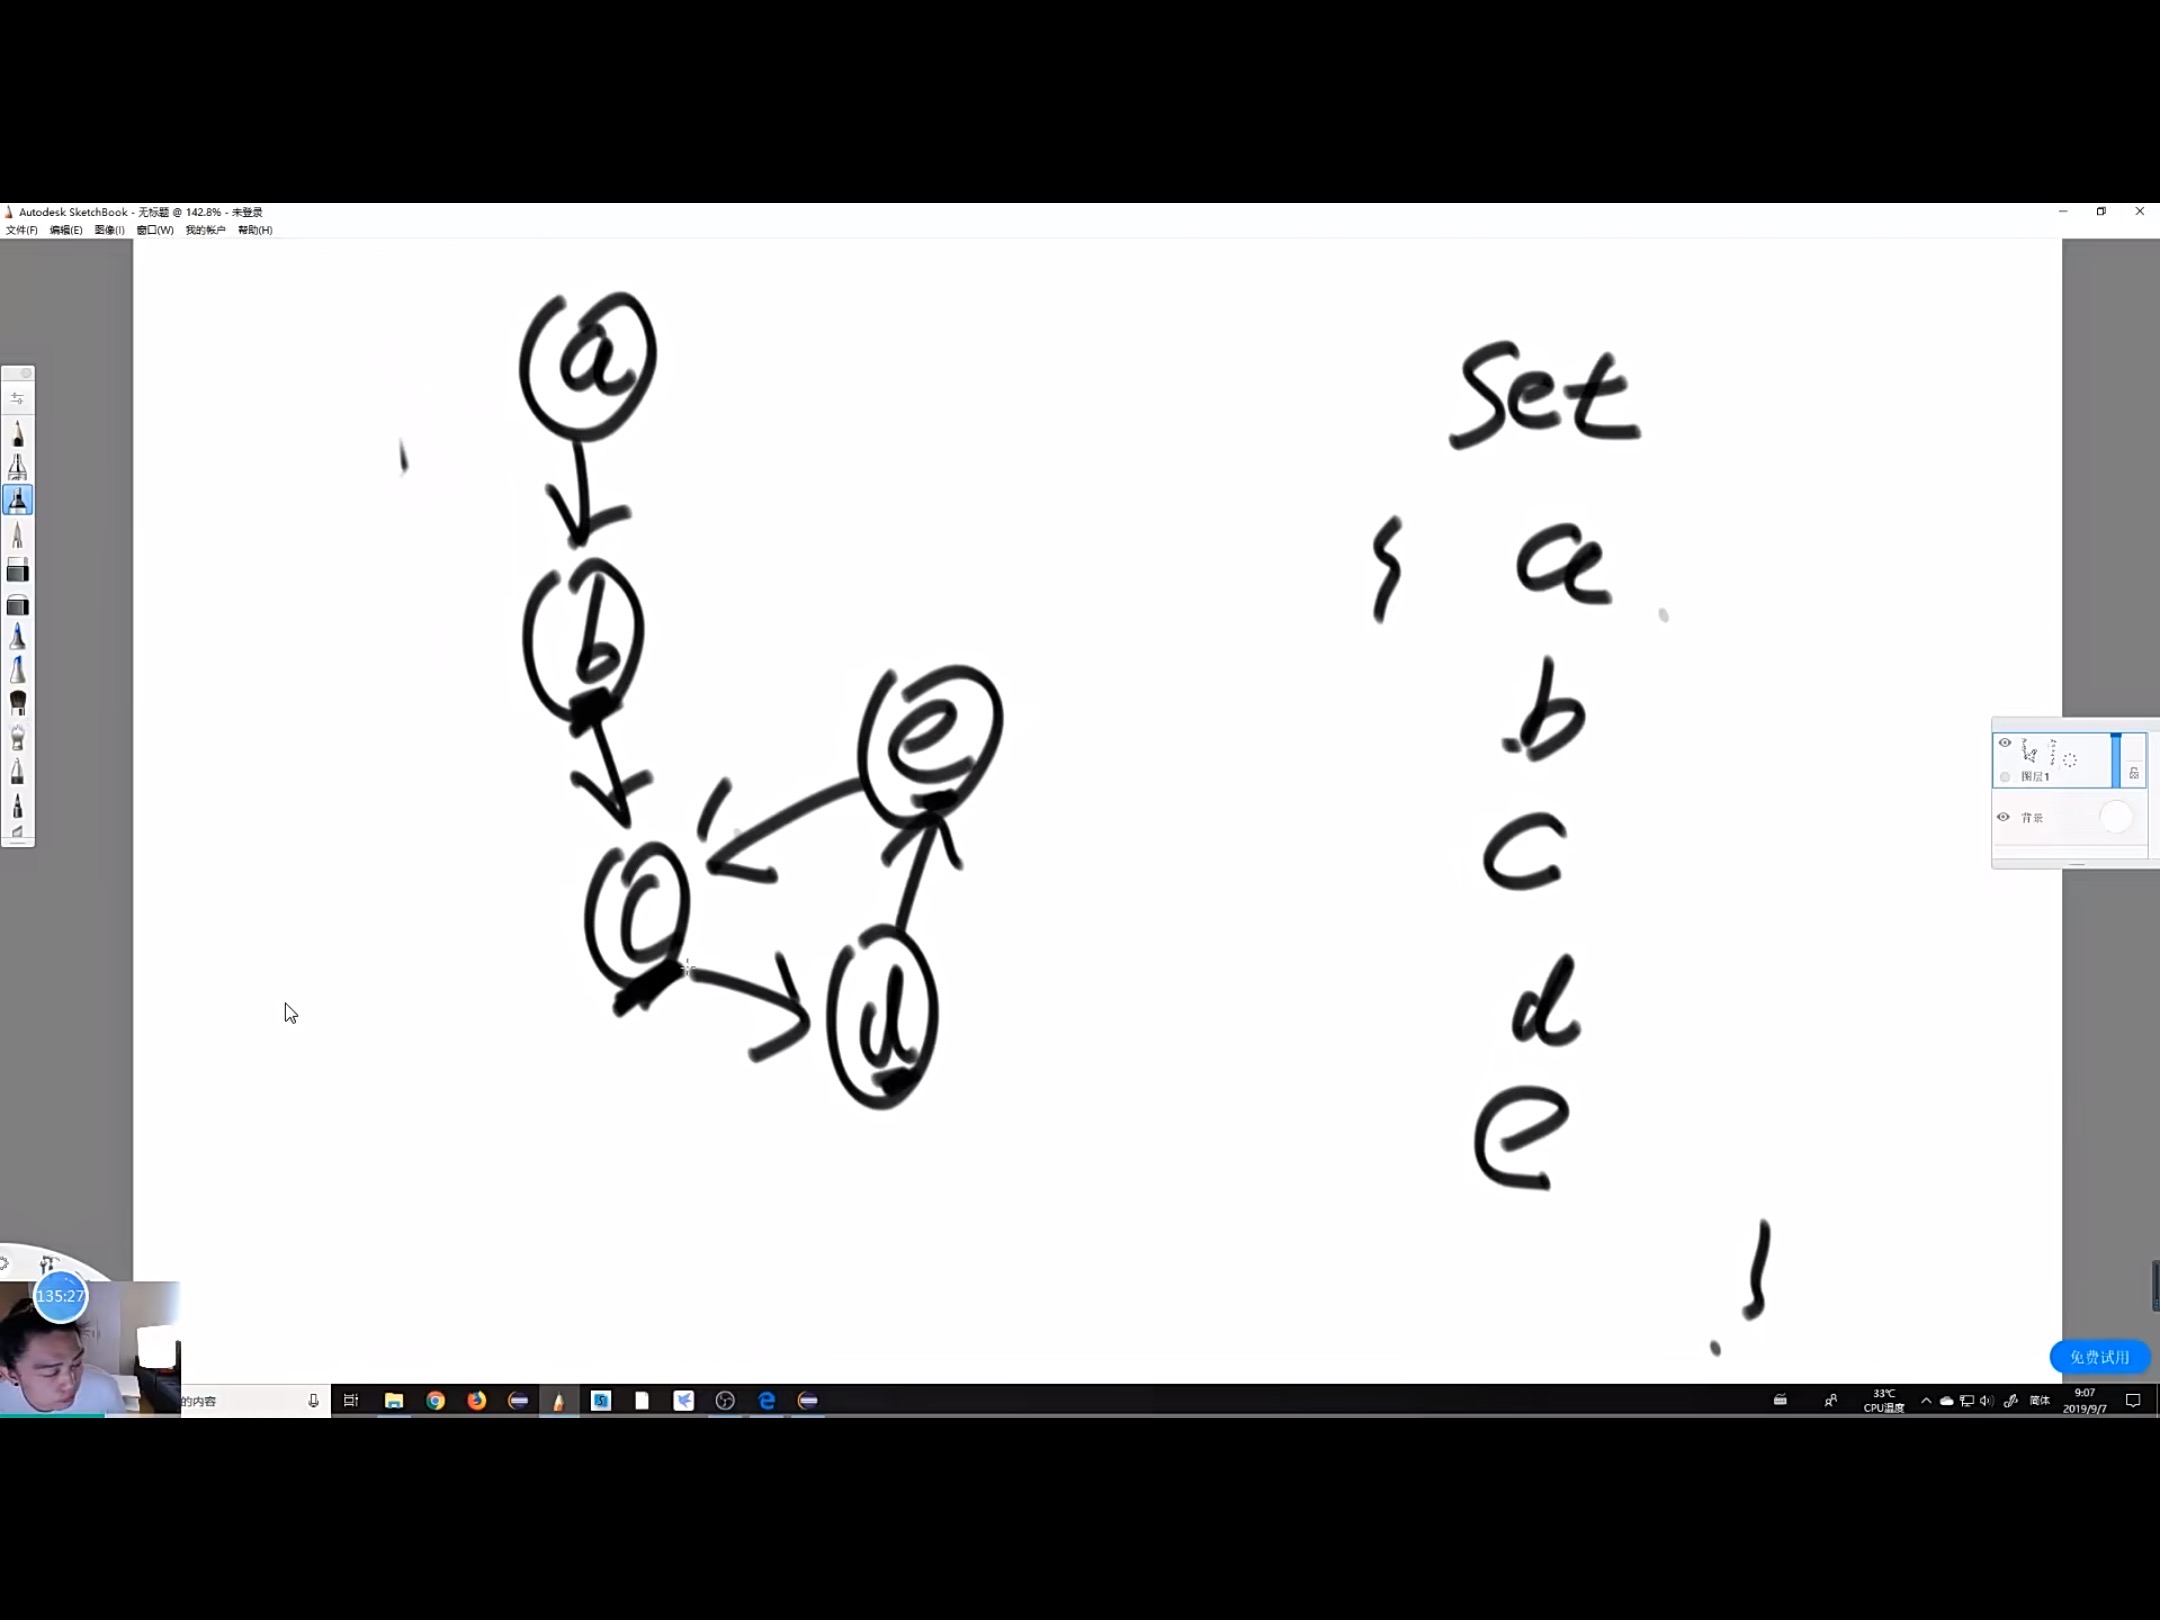 Autodesk SketchBook - 无标题 @ 142.8% - 未登录
文件(F) 编辑(E) 图像(I) 窗口(W) 我的帐户 帮助(H)
a
b
e
c
d
Set
{ a
b
c
d
e
}
图层1
背景
135:27
免费试用
的内容
33℃
CPU温度
简体
9:07
2019/9/7